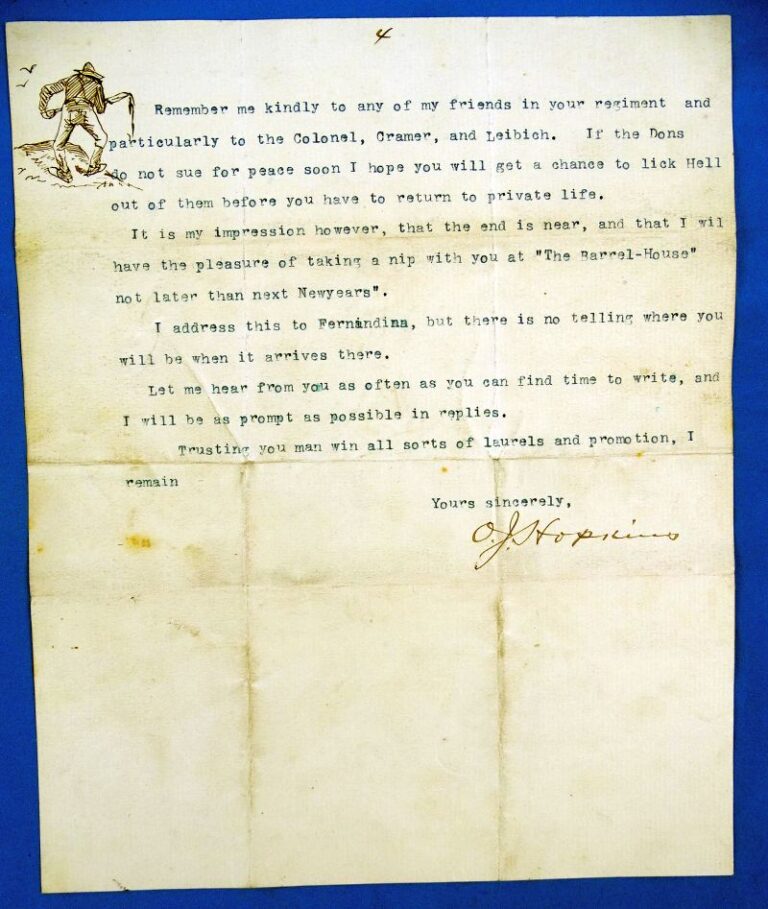 4
Remember me kindly to any of my friends in your regiment and
particularly to the Colonel, Cramer, and Leibich. If the Dons
do not sue for peace soon I hope you will get a chance to lick Hell
out of them before you have to return to private life.
It is my impression however, that the end is near, and that I wil
have the pleasure of taking a nip with you at "The Barrel-House"
not later than next Newyears".
I address this to Fernandina, but there is no telling where you
will be when it arrives there.
Let me hear from you as often as you can find time to write, and
I will be as prompt as possible in replies.
Trusting you man win all sorts of laurels and promotion, I
remain
Yours sincerely,
O.J. Hopkins